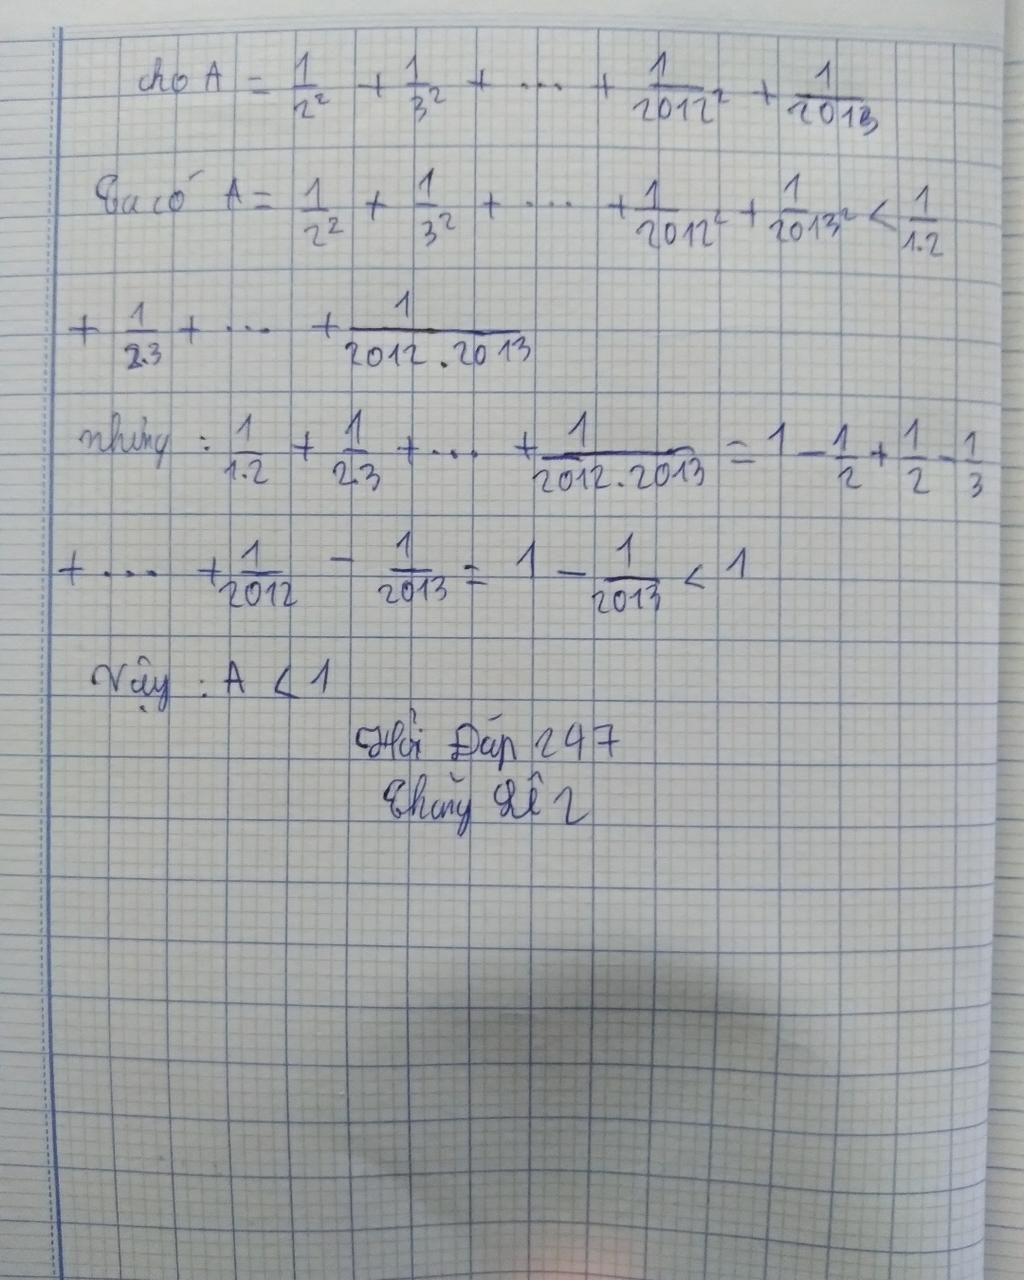 cho A = 1/2² + 1/3² + ... + 1/2012² + 1/2013
Ta có A = 1/2² + 1/3² + ... + 1/2012² + 1/2013² < 1/1.2
+ 1/2.3 + ... + 1/2012.2013
nhưng : 1/1.2 + 1/2.3 + ... + 1/2012.2013 = 1 - 1/2 + 1/2 - 1/3
+ ... + 1/2012 - 1/2013 = 1 - 1/2013 < 1
Vậy : A < 1
Hỏi Đáp 247
2